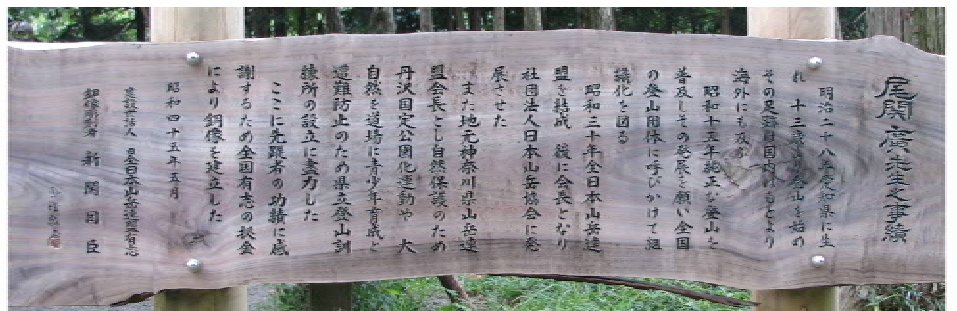 尾関廣先生之事績
明治二十八年愛知県に生
れ 十三歳 登山を始め
その足跡は国内はもとより
海外にも及ぶ
昭和十五年純正な登山を
普及しその発展を願い全国
の登山団体に呼びかけて組
織化を図る
昭和三十年全日本山岳連
盟を結成 後に会長となり
社団法人日本山岳協会に発
展させた
また地元神奈川県山岳連
盟会長とし自然保護のため
丹沢国定公園化運動や 大
自然を道場に青少年育成と
遭難防止のため県立登山訓
練所の設立に尽力した
ここに先蹤者の功績に感
謝するため全国有志の拠金
により銅像を建立した
昭和四十五年五月
建設世話人 全日本山岳連盟有志
銅像制作者 新関国臣